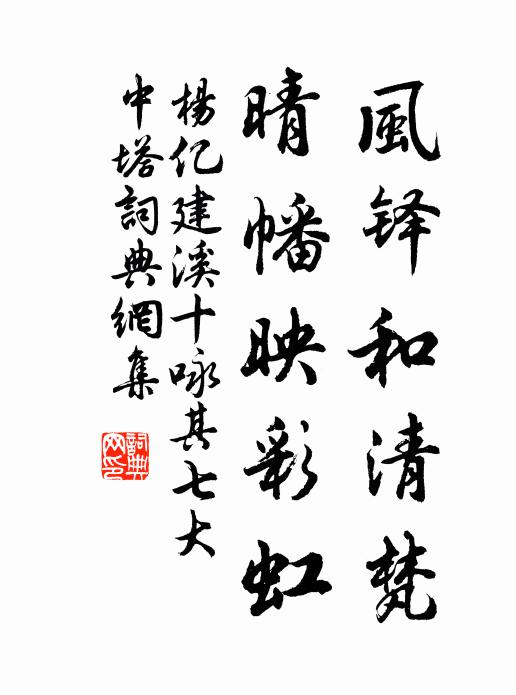 風铎和清梵
晴幡映彩虹
楊亿建溪十咏其七大
中塔詞典網集
詞典
网印